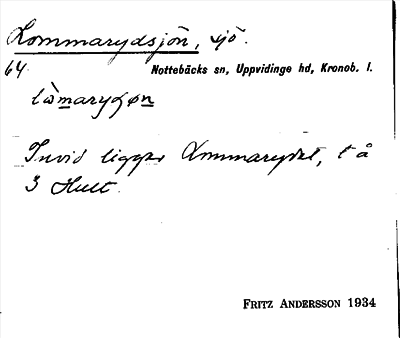 Lommarydsjön, sjö.
64. Nottebäcks sn, Uppvidinge hd, Kronob. l.
Invid ligger Lommarydet, t å
3 Hult.
FRITZ ANDERSSON 1934